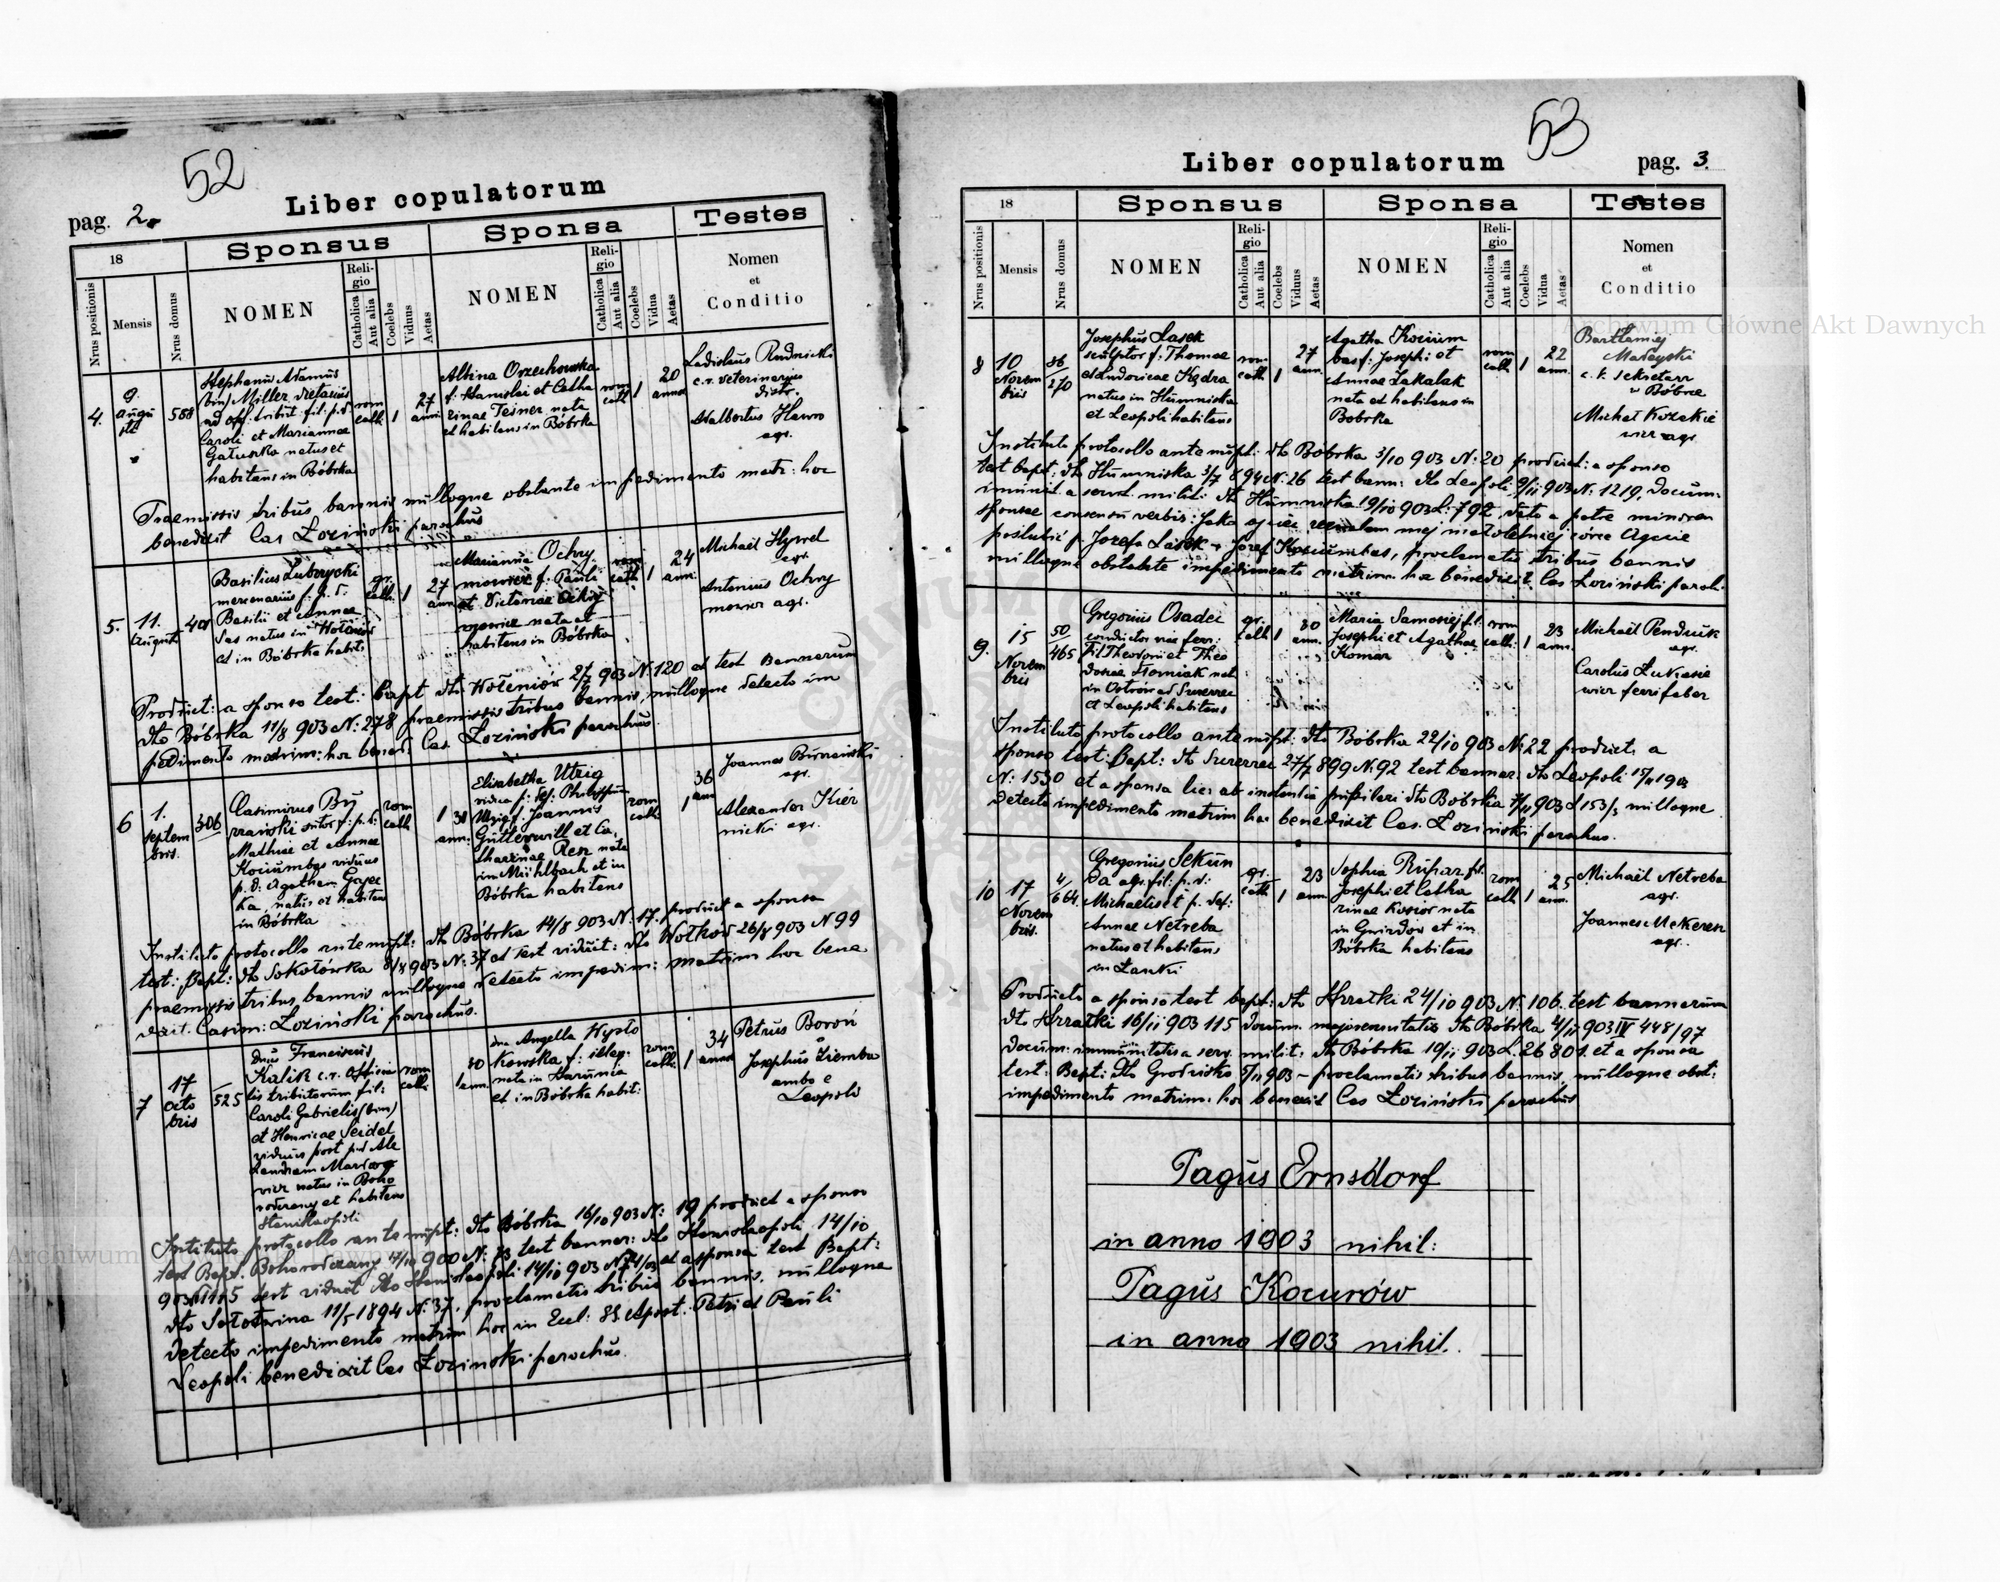 52
Liber copulatorum
pag. 2.
18
Sponsus
Sponsa
Testes
Nrus positionis
Mensis
Nrus domus
NOMEN
Religio
Catholica
Aut alia
Coelebs
Viduus
Aetas
NOMEN
Religio
Catholica
Aut alia
Coelebs
Vidua
Aetas
Nomen
et
Conditio
4.
9.
augu
sti
588
Stephanus Adamus
Miller
ad off. tribut. fil: p. d.
Caroli et Mariannae
Gatuszka natus et
habitans in Bóbrka
rom
cath.
1
27
ann.
Albina Orzechowska
f: Stanislai et Catha
rinae Tesner nata
et habitans in Bóbrka
rom
cath
1
20
annor
Ladislaus Rudnicki
c. r. veterinarius
distr.
Adalbertus Hawro
agr.
Praemissis tribus bannis nulloque obstante impedimento matr: hoc
benedixit Cas Łoziński parochus
5.
11.
Augusti
401
Basilius Luberycki
mercenarius f: p. d.
Basilii et Annae
Sas natus in Hołdniów
et in Bóbrka habit:
gr.
cath.
1
27
ann.
Marianna Ochry
mowicz f: Pauli
et Victoriae Ochry
mowicz nata et
habitans in Bóbrka
rom
cath
1
24
ann:
Michael Hyzrel
agr.
Antonius Ochry
mowicz agr.
Product: a sponso test: bapt dto 2/7 903 N: 120 et test bannorum
dto Bóbrka 11/8 903 N: 278 praemissis tribus bannis, nulloque detecto im
pedimento matrim: hoc bened: Cas Łoziński parochus.
6
1.
Septem
bris.
306
Casimirus Bu
rzański sutor f: p. d:
Mathiae et Annae
Kociumbas viduus
p. d: Agatham Gajec
ka, natus et habitans
in Bóbrka
rom
cath
1
38
ann.
Elisabetha Utzig
vidua p: def: Philippum
Utzig f: Joannis
Gutterwill et Ca,
tharinae Renz nata
in Mühlbach et in
Bóbrka habitans
rom
cath:
1
36
ann
Joannes Burzański
agr.
Alexander Kier
nicki agr.
Instituto protocollo antenupt: dto Bóbrka 14/8 903 N: 17. product a sponsa
test: Bapt: dto Sokołówka 8/8 903 N: 37 et test viduit: dto Wołków 26/8 903 N 99
praemissis tribus bannis nulloque detecto impedim: matrim hoc bene
dixit. Casim: Łoziński parochus.
7
17
Octo
bris
525
dnus Franciscus
Kalik c. r. Officia
lis tributorum fil:
Caroli Gabrielis (bin)
et Henricae Seidel
viduus post p. d Ale
xandram Marko
wicz natus in Boho
rodczany et habitans
Stanislaopoli
rom
cath.
1
40
ann.
dna Angella Hypto
kowska f: illeg.
nata in Harunia
et in Bóbrka habit:
rom
cath:
1
34
annor
Petrus Boroń
Josephus Ziemba
ambo e
Leopoli
Instituto protocollo antenupt: dto Bóbrka 16/10 903 N: 19 product a sponso
test Bapt. Bohorodczany 17/10 900 N: 73 test bannor: dto Stanislaopoli 14/10
903 N 1115 test viduit dto Stanislaopoli 14/10 903 et a sponsa test Bapt:
dto Sołotwina 11/5 1894 N: 37, proclamatis tribus bannis, nulloque
detecto impedimento matrim hoc in Eccl: SS. Apost. Petri et Pauli
Leopoli benedixit Cas Łoziński parochus.
53
Liber copulatorum
pag. 3.
18
Sponsus
Sponsa
Testes
Nrus positionis
Mensis
Nrus domus
NOMEN
Religio
Catholica
Aut alia
Coelebs
Viduus
Aetas
NOMEN
Religio
Catholica
Aut alia
Coelebs
Vidua
Aetas
Nomen
et
Conditio
8
10
Novem
bris
86
270
Josephus Lasek
sculptor f: Thomae
et Ludovicae Kędra
natus in Humniska
et Leopoli habitans
rom
cath
1
27
ann.
Agatha Kocium
bas f: Josephi et
Annae Zakalak
nata et habitans in
Bobrka
rom
cath
1
22
ann.
Bartłomiej
Maleyski
c. k. sekretarz
w Bóbrce
Michał Kozakie
wicz agr.
Instituto protocollo antenupt: dto Bóbrka 3/10 903 N: 20 product: a sponso
test bapt: dto Humniska 3/7 894 N: 26 test bann: dto Leopoli 9/11 903 N: 1219. docum:
immunit a servit militi dto Humniska 19/10 903 L: 792 dato a patre minoren
sponsae consensu verbis: Jako ojciec zezwalam mej małoletniej córce Agacie
poślubić p. Józefa Lasek + Józef Kociumbas, proclamatis tribus bannis
nulloque obstante impedimento matrim. hoc benedixit Cas Łoziński paroch.
9.
15
Novem
bris
50
465
Gregorius Osadci
conductor viae ferr:
fil Theodori et Theo
dosiae Homiak nat
in Ostrów ad
et Leopoli habitans
gr.
cath
1
30
ann.
Maria Samosiej f:
Josephi et Agathae
Komar
rom
cath:
1
23
ann.
Michaël Penduk
agr.
Carolus Łukasie
wicz ferrifaber
Instituto protocollo antenupt: dto Bóbrka 22/10 903 N: 22 product: a
sponso test: Bapt: dto 27/7 899 N: 92 test bannor: dto Leopoli 15/11 903
N: 1530 et a sponsa lic: ab instantia pupilari dto Bóbrka 7/11 903 L 153/3 nulloque
detecto impedimento matrim hoc benedixit Cas. Łoziński parochus.
10
17
Novem
bris.
4/
664.
Gregorius Sekun
da agr. fil: p. d:
Michaelis et p. def:
Annae Netreba
natus et habitans
in Łanki
gr.
cath
1
23
ann.
Sophia Ruhar f:
Josephi et Catha
rinae Kosior nata
in et in
Bóbrka habitans
rom
cath
1
25
ann.
Michaël Netreba
agr.
Joannes Mekeren
agr.
Producto a sponso test bapt: dto Hrratki 24/10 903 N: 106. test bannorum
dto Hrratki 16/11 903 115 docum. majorennitatis dto Bóbrka 4/11 903 IV 448/97
docum: immunitatis a serv. milit: dto Bóbrka 19/11 903 L. 26801. et a sponsa
test: Bapt: dto Grodzisko 5/11 903 – proclamatis tribus bannis, nulloque obst:
impedimento matrim. hoc benedixit Cas Łoziński parochus
Pagus Ernsdorf
in anno 1903 nihil:
Pagus Kocurów
in anno 1903 nihil.
Archiwum Główne Akt Dawnych
Archiwum Główne Akt Dawnych